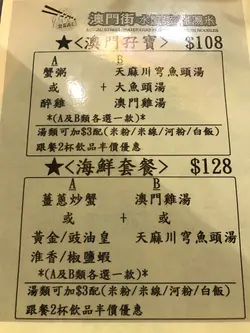 澳門街
★<澳門孖寶> $108
A B
蟹粥 天麻川穹魚頭湯
或 + 大魚頭湯
醉雞 澳門雞湯
*(A及B類各選一款)*
湯類可加$3配(米粉/米線/河粉/白飯)
跟餐2杯飲品半價優惠
★<海鮮套餐> $128
A B
薑蔥炒蟹 澳門雞湯
或 + 或
黃金/豉油皇 天麻川穹魚頭湯
淮香/椒鹽蝦
*(A及B類各選一款)*
湯類可加$3配(米粉/米線/河粉/白飯)
跟餐2杯飲品半價優惠